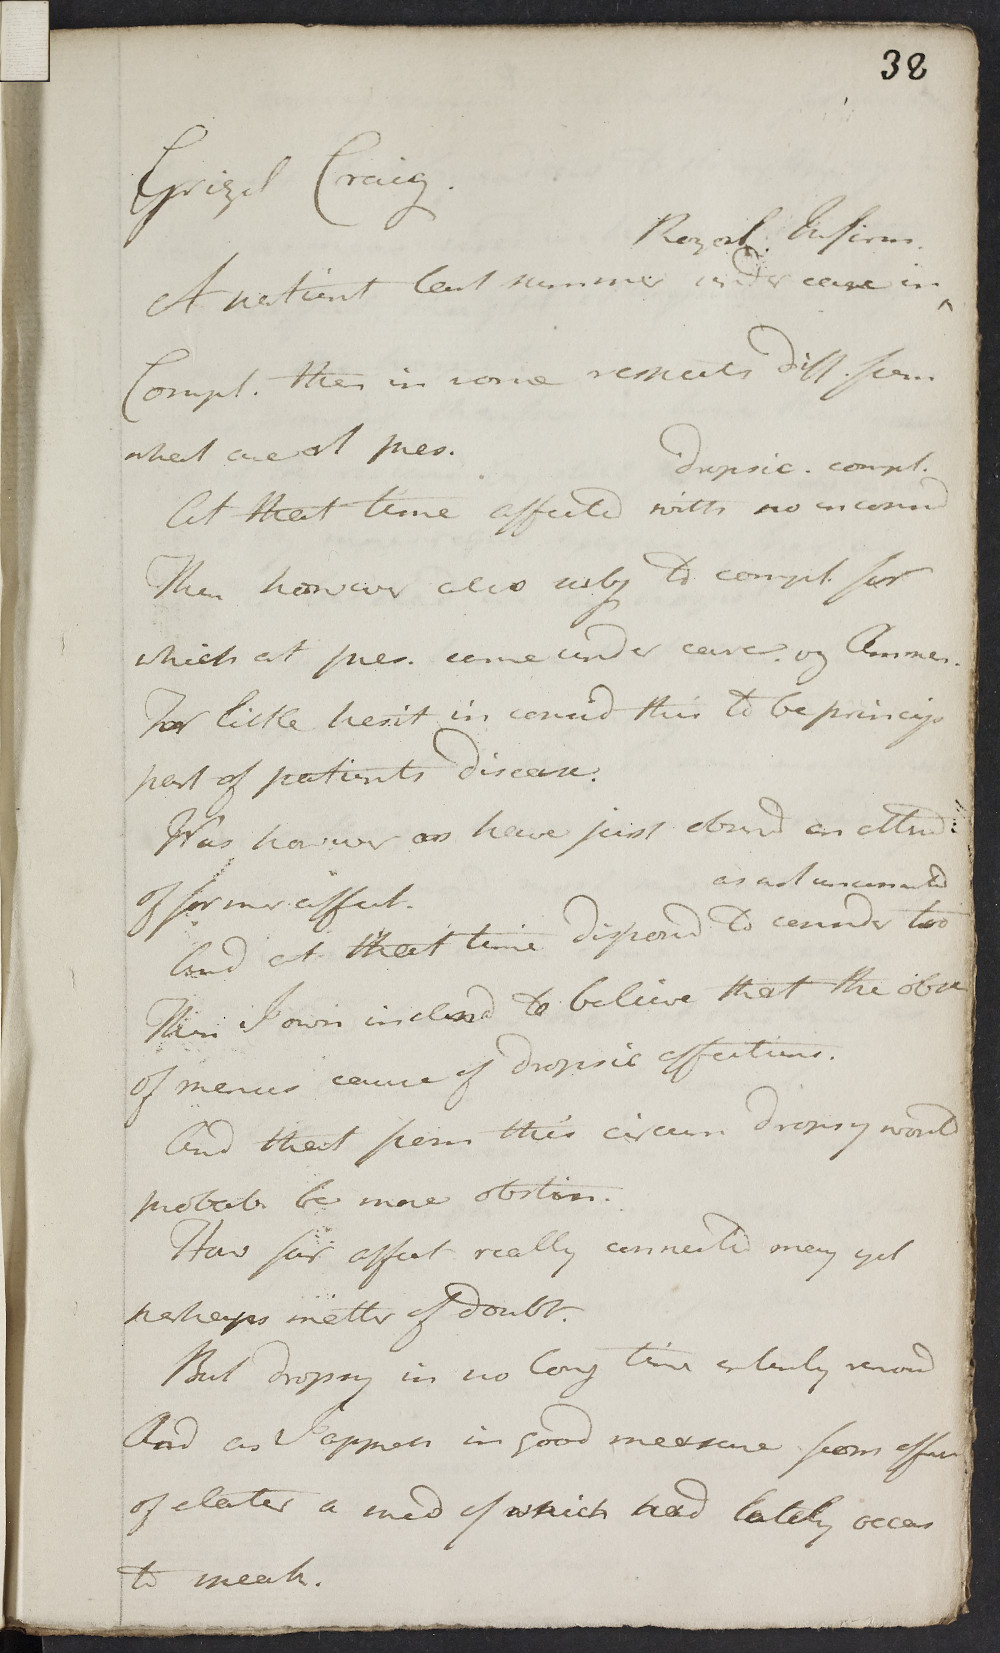 38
Grizel Craig.
Royal. Infirm.
A patient last summer under care in ^
Compl. then in some respects diff. from
what are at pres.
dropsic. compl.
At that time affected with no
Then however also subj to compl. for
which at pres. came under care. viz Amen.
For little hesit in consid this to be princip
part of patients disease.
Was however as have just observd an attend
of former affect.
as not unconnected
And at that time disposed to consider two
Then I own inclind to believe that the obst
of menses cause of dropsic affections.
And that from this circum dropsy would
probab be more obstin.
How far affect really connected may yet
perhaps matter of doubt.
But dropsy in no long time entirely removd
And as I appreh in good measure from effec
of elater a med of which had lately occas
to speak.